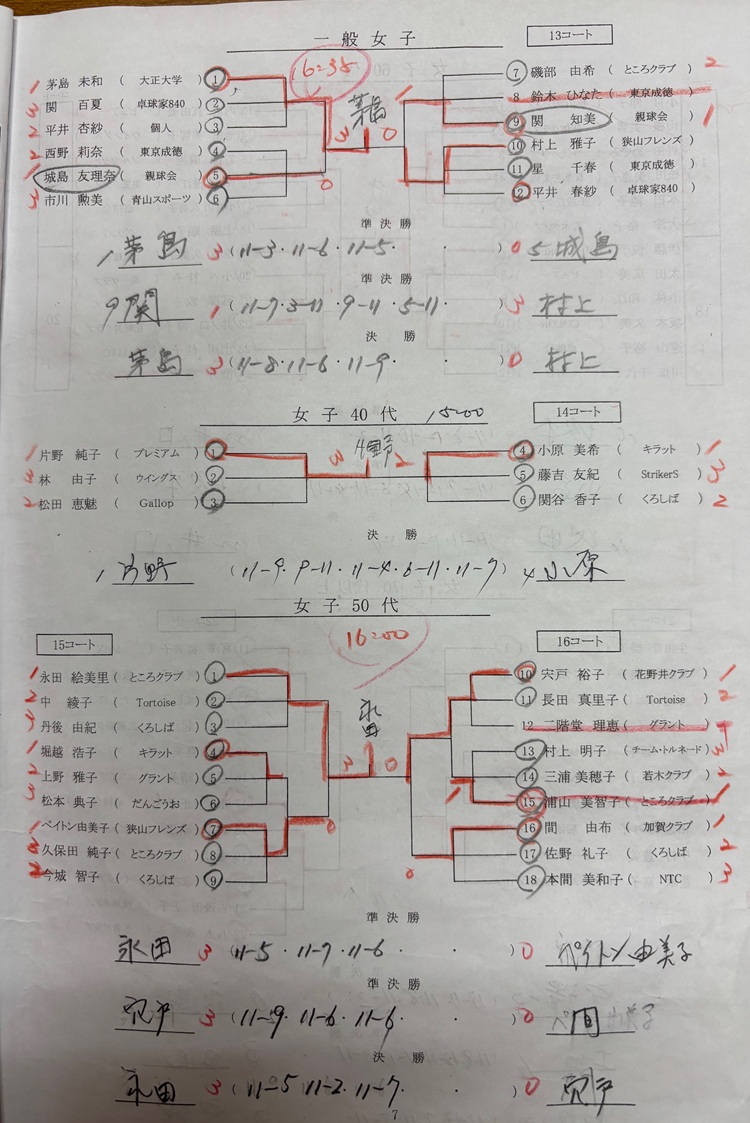 一般女子 13コート
16:35
1 茅島 未和 ( 大正大学 ) 1
3 関 百夏 ( 卓球家840 ) 2
2 平井 杏紗 ( 個人 ) 3
2 西野 莉奈 ( 東京成徳 ) 4
1 城島 友理奈 ( 親球会 ) 5
3 市川 勲美 ( 青山スポーツ ) 6
茅島
3 0
0 1
7 磯部 由希 ( ところクラブ ) 2
8 鈴木 ひなた ( 東京成徳 )
9 関 知美 ( 親球会 ) 1
10 村上 雅子 ( 狭山フレンズ )
11 星 千春 ( 東京成徳 )
12 平井 春紗 ( 卓球家840 )
準決勝
1 茅島 3 ( 11-3 · 11-6 · 11-5 · · ) 0 5 城島
準決勝
9 関 1 ( 11-7 · 3-11 · 9-11 · 5-11 · ) 3 村上
決勝
茅島 3 ( 11-8 · 11-6 · 11-9 · · ) 0 村上
女子40代 15:00 14コート
1 片野 純子 ( プレミアム ) 1
3 林 由子 ( ウイングス ) 2
2 松田 恵魅 ( Gallop ) 3
3 2
4 小原 美希 ( キラット ) 1
5 藤吉 友紀 ( StrikerS ) 3
6 関谷 香子 ( くろしば ) 2
決勝
1 片野 ( 11-9 · 9-11 · 11-4 · 6-11 · 11-7 ) 4 小原
女子50代
15コート 16:00 16コート
1 永田 絵美里 ( ところクラブ ) 1
2 中 綾子 ( Tortoise ) 2
3 丹後 由紀 ( くろしば ) 3
1 堀越 浩子 ( キラット ) 4
2 上野 雅子 ( グラント ) 5
3 松本 典子 ( だんごうお ) 6
1 ペイトン由美子 ( 狭山フレンズ ) 7
3 久保田 純子 ( ところクラブ ) 8
2 今城 智子 ( くろしば ) 9
永田
3 0
0 1 0
10 宍戸 裕子 ( 花野井クラブ ) 1
11 長田 真里子 ( Tortoise ) 2
12 二階堂 理恵 ( グラント )
13 村上 明子 ( チーム・トルネード ) 3
14 三浦 美穂子 ( 若木クラブ ) 2
15 浦山 美智子 ( ところクラブ ) 1
16 間 由布 ( 加賀クラブ ) 1
17 佐野 礼子 ( くろしば ) 2
18 本間 美和子 ( NTC ) 3
準決勝
永田 3 ( 11-5 · 11-7 · 11-6 · · ) 0 ペイトン由美子
準決勝
宍戸 3 ( 11-9 · 11-6 · 11-6 · · ) 0 間
決勝
永田 3 ( 11-5 11-2 · 11-7 · · ) 0 宍戸
7